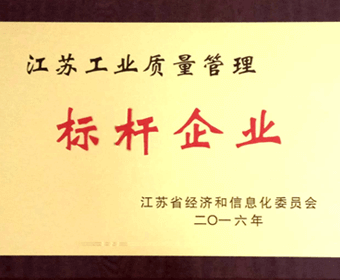 江苏工业质量管理
标杆企业
江苏省经济和信息化委员会
二〇一六年